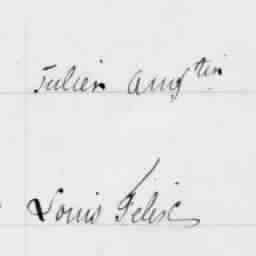 Julien Aug tin
Louis Felix